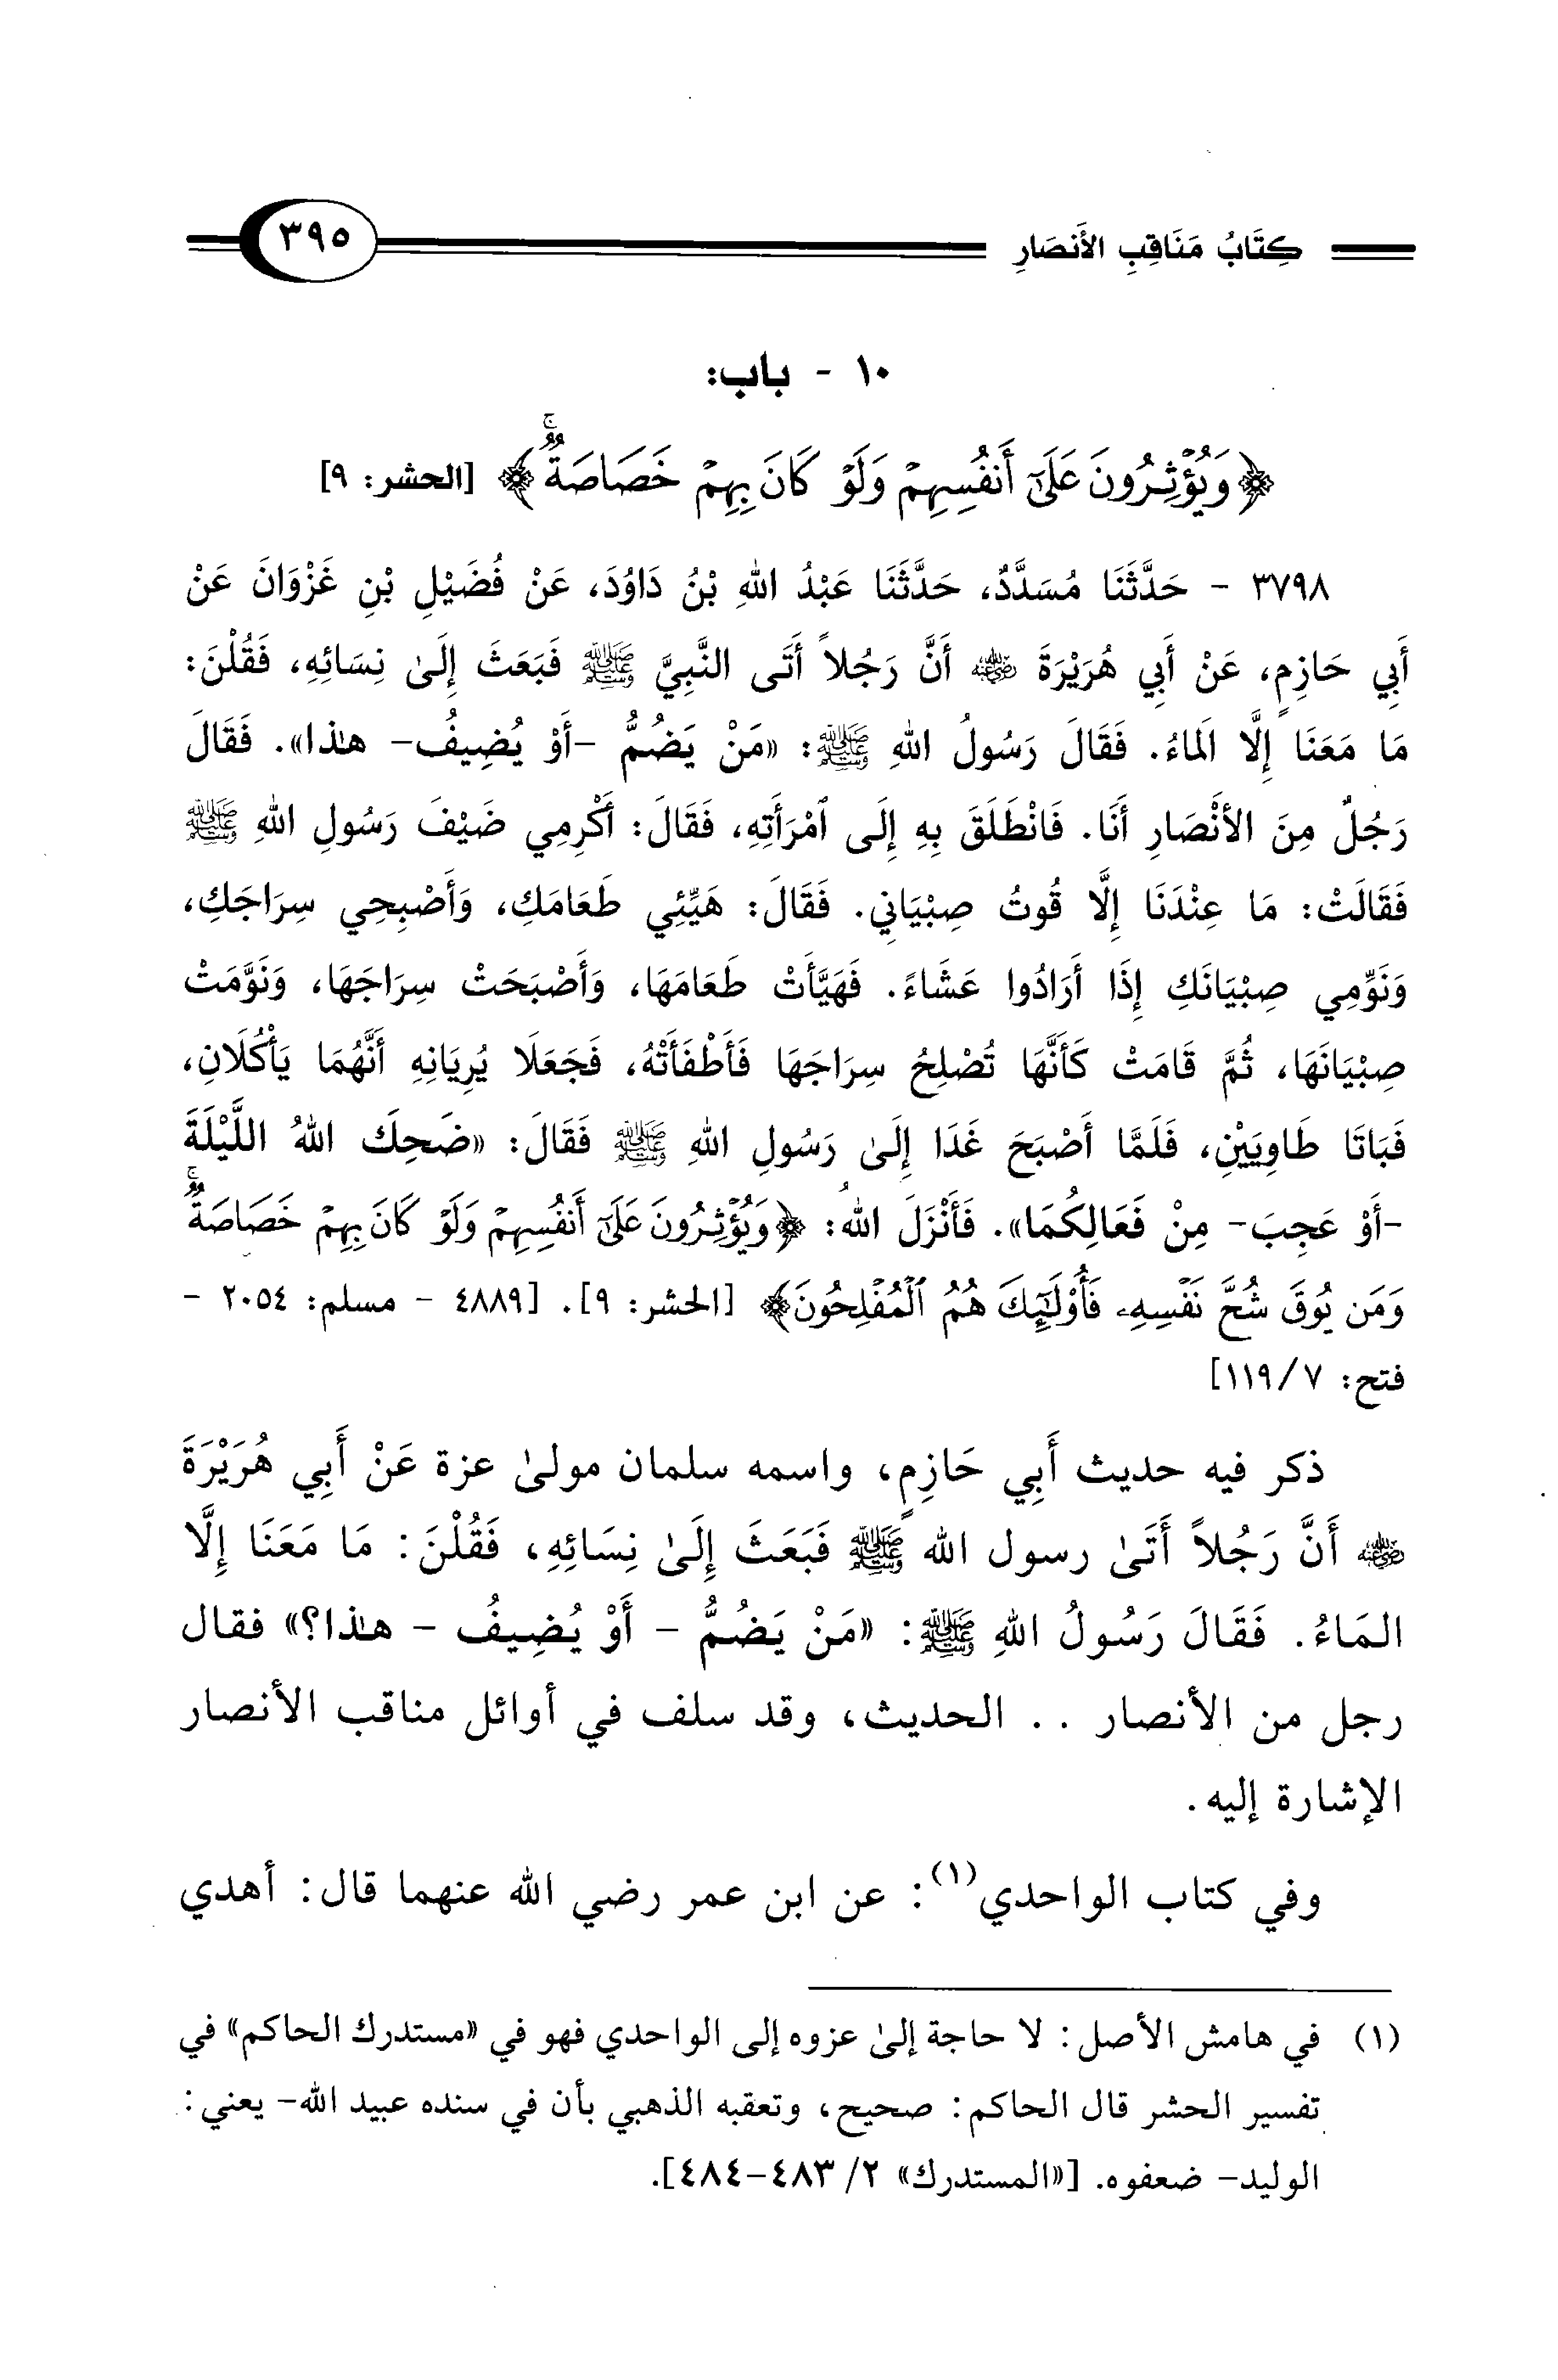 كِتَابُ مَنَاقِبِ الأَنصَارِ ٣٩٥
١٠ - باب:
﴿وَيُؤْثِرُونَ عَلَىٰٓ أَنفُسِهِمْ وَلَوْ كَانَ بِهِمْ خَصَاصَةٌۚ﴾ [الحشر: ٩]
٣٧٩٨ - حَدَّثَنَا مُسَدَّدٌ، حَدَّثَنَا عَبْدُ اللهِ بْنُ دَاوُدَ، عَنْ فُضَيْلِ بْنِ غَزْوَانَ عَنْ
أَبِي حَازِمٍ، عَنْ أَبِي هُرَيْرَةَ رضي الله عنه أَنَّ رَجُلاً أَتَى النَّبِيَّ ﷺ فَبَعَثَ إِلَىٰ نِسَائِهِ، فَقُلْنَ:
مَا مَعَنَا إِلَّا اَلمَاءُ. فَقَالَ رَسُولُ اللهِ ﷺ: «مَنْ يَضُمُّ -أَوْ يُضِيفُ- هٰذا». فَقَالَ
رَجُلٌ مِنَ الأَنْصَارِ أَنَا. فَانْطَلَقَ بِهِ إِلَى ٱمْرَأَتِهِ، فَقَالَ: أَكْرِمِي ضَيْفَ رَسُولِ اللهِ ﷺ
فَقَالَتْ: مَا عِنْدَنَا إِلَّا قُوتُ صِبْيَانِي. فَقَالَ: هَيِّئِي طَعَامَكِ، وَأَصْبِحِي سِرَاجَكِ،
وَنَوِّمِي صِبْيَانَكِ إِذَا أَرَادُوا عَشَاءً. فَهَيَّأَتْ طَعَامَهَا، وَأَصْبَحَتْ سِرَاجَهَا، وَنَوَّمَتْ
صِبْيَانَهَا، ثُمَّ قَامَتْ كَأَنَّهَا تُصْلِحُ سِرَاجَهَا فَأَطْفَأَتْهُ، فَجَعَلَا يُرِيَانِهِ أَنَّهُمَا يَأْكُلَانِ،
فَبَاتَا طَاوِيَيْنِ، فَلَمَّا أَصْبَحَ غَدَا إِلَىٰ رَسُولِ اللهِ ﷺ فَقَالَ: «ضَحِكَ اللهُ اللَّيْلَةَ
-أَوْ عَجِبَ- مِنْ فَعَالِكُمَا». فَأَنْزَلَ اللهُ: ﴿وَيُؤْثِرُونَ عَلَىٰٓ أَنفُسِهِمْ وَلَوْ كَانَ بِهِمْ خَصَاصَةٌۚ
وَمَن يُوقَ شُحَّ نَفْسِهِۦ فَأُو۟لَٰٓئِكَ هُمُ ٱلْمُفْلِحُونَ﴾ [الحشر: ٩]. [٤٨٨٩ - مسلم: ٢٠٥٤ -
فتح: ٧/ ١١٩]
ذكر فيه حديث أَبِي حَازِمٍ، واسمه سلمان مولىٰ عزة عَنْ أَبِي هُرَيْرَةَ
رضي الله عنه أَنَّ رَجُلاً أَتَىٰ رسول الله ﷺ فَبَعَثَ إِلَىٰ نِسَائِهِ، فَقُلْنَ: مَا مَعَنَا إِلَّا
المَاءُ. فَقَالَ رَسُولُ اللهِ ﷺ: «مَنْ يَضُمُّ - أَوْ يُضِيفُ - هٰذا؟» فقال
رجل من الأنصار . . الحديث، وقد سلف في أوائل مناقب الأنصار
الإشارة إليه.
وفي كتاب الواحدي(١): عن ابن عمر رضي الله عنهما قال: أهدي
(١) في هامش الأصل: لا حاجة إلىٰ عزوه إلى الواحدي فهو في «مستدرك الحاكم» في
تفسير الحشر قال الحاكم: صحيح، وتعقبه الذهبي بأن في سنده عبيد الله- يعني:
الوليد- ضعفوه. [«المستدرك» ٢/ ٤٨٣-٤٨٤].